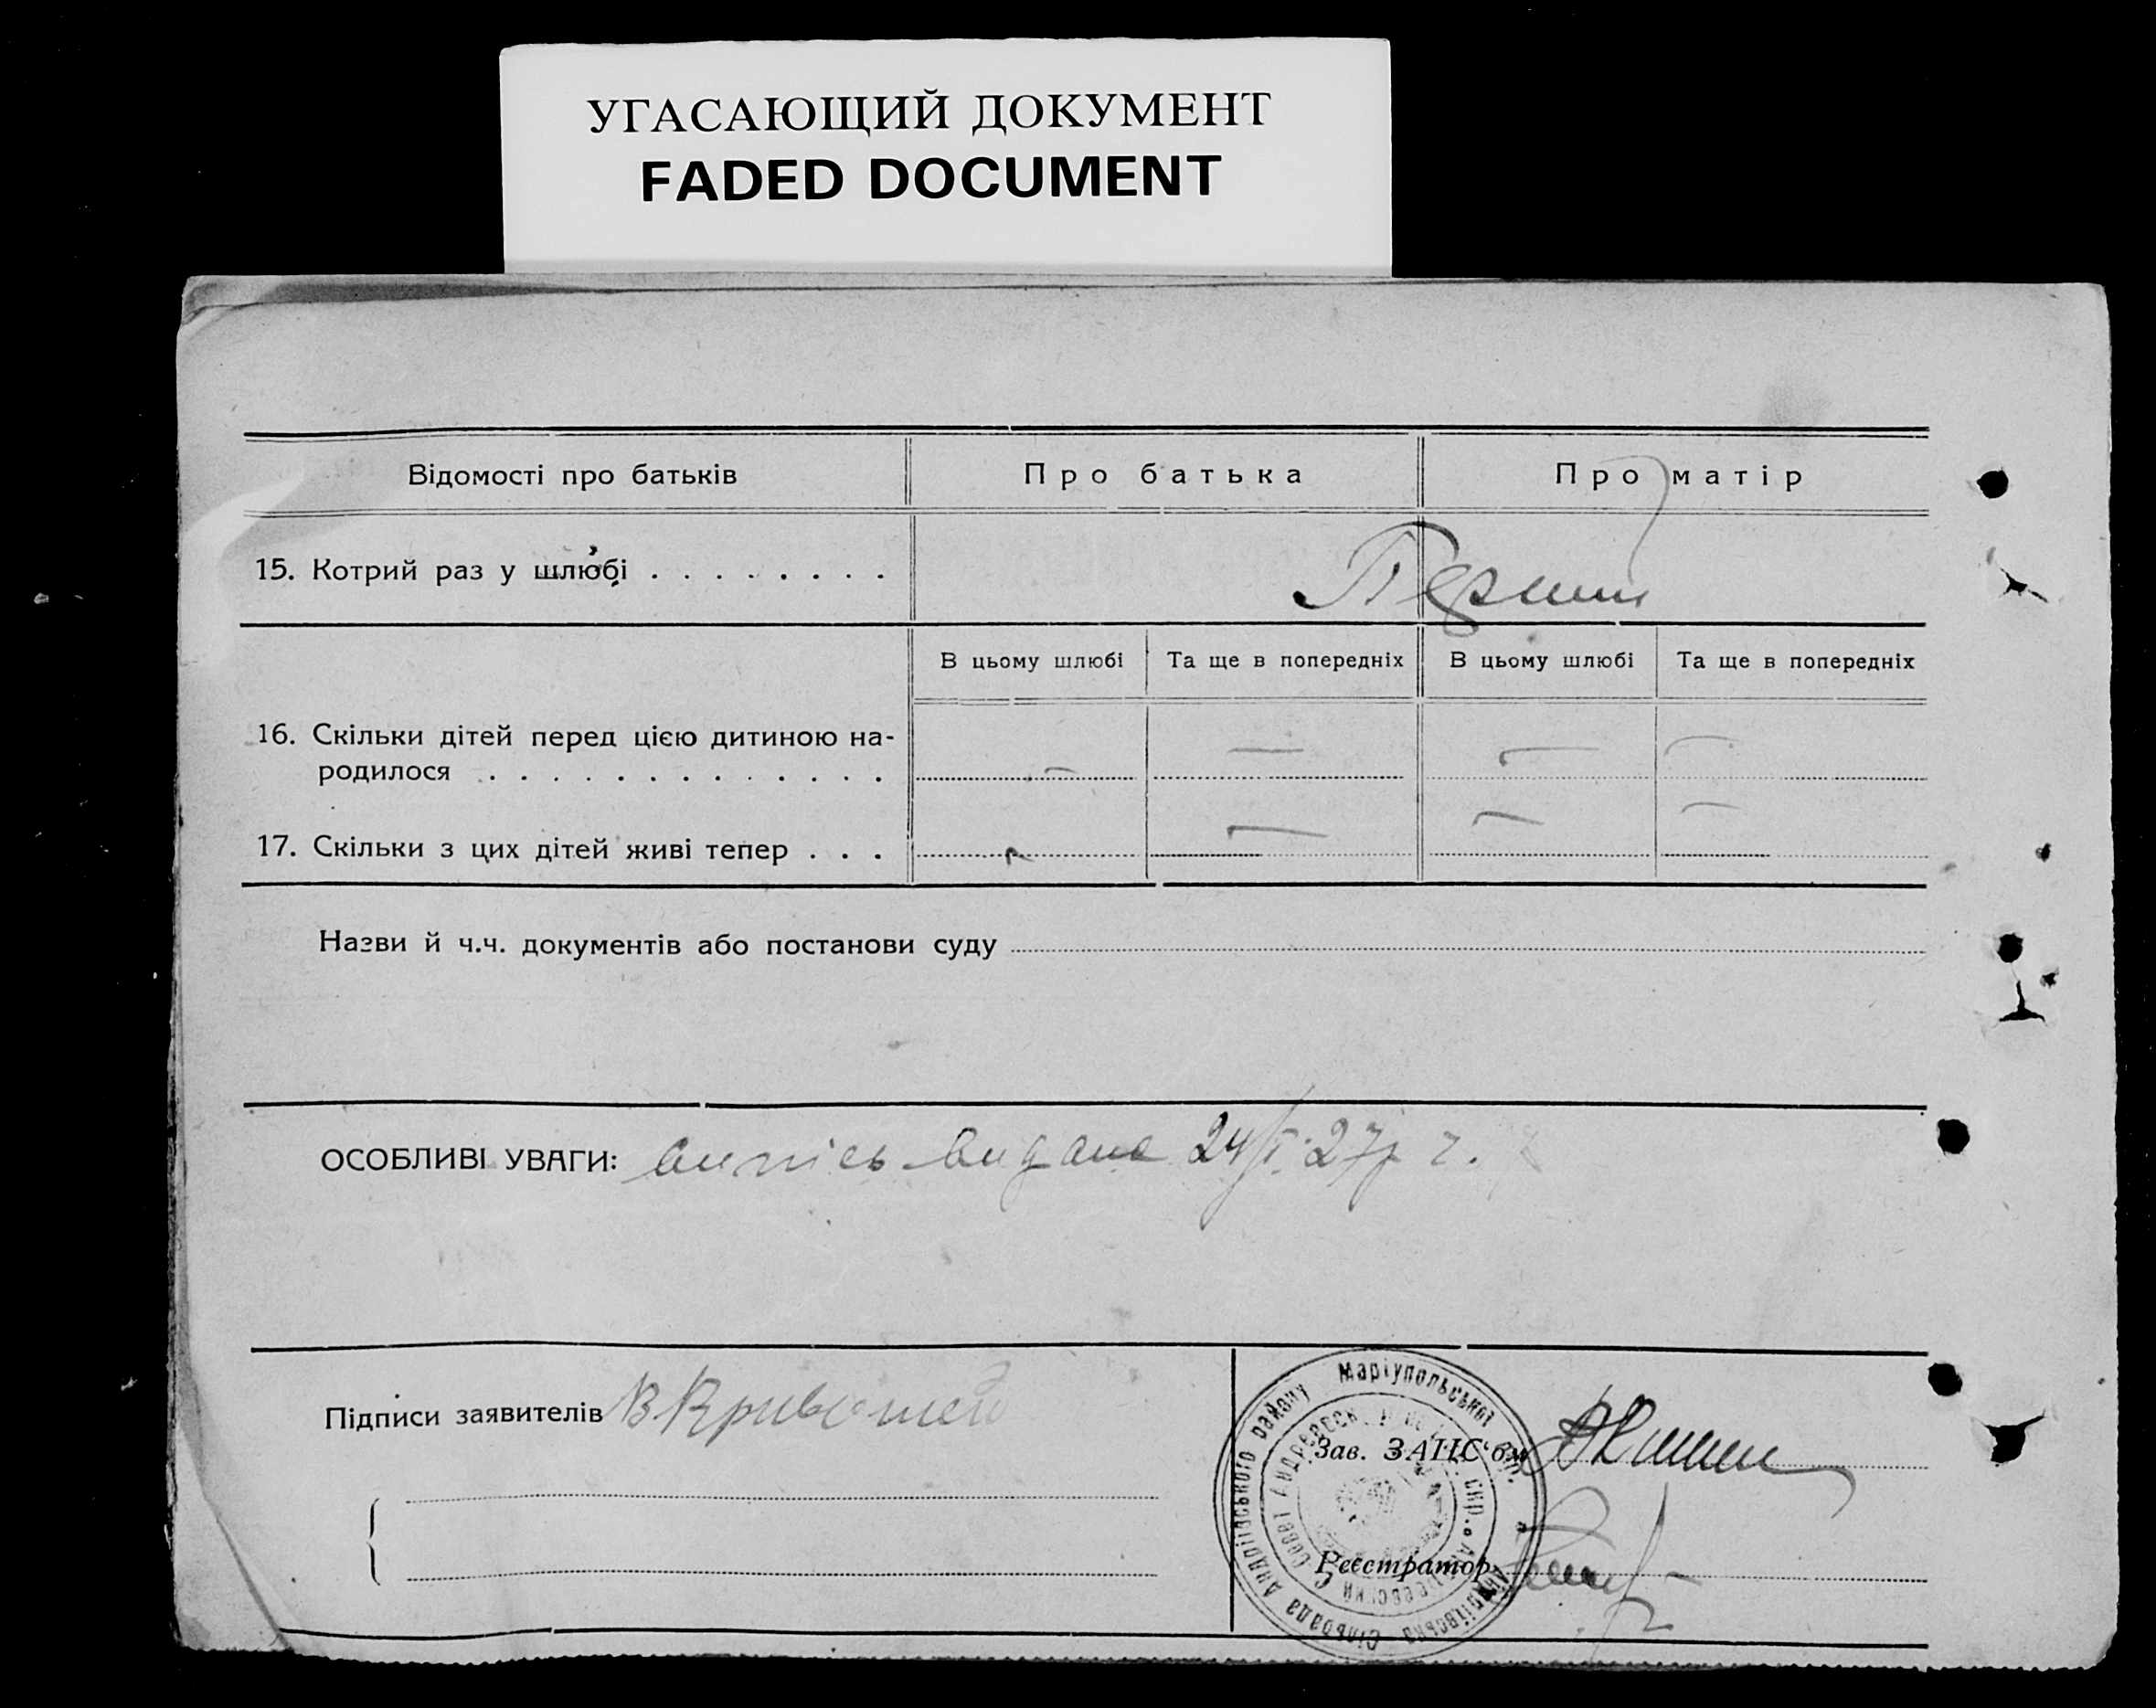 УГАСАЮЩИЙ ДОКУМЕНТ
FADED DOCUMENT
Відомості про батьків Про батька Про матір
15. Котрий раз у шлюбі . . . . . . . . Перший
В цьому шлюбі Та ще в попередніх В цьому шлюбі Та ще в попередніх
16. Скільки дітей перед цією дитиною на-
родилося . . . . . . . . . . . . . — — — —
17. Скільки з цих дітей живі тепер . . . — — — —
Назви й ч.ч. документів або постанови суду
ОСОБЛИВІ УВАГИ: випись видана 24/I 27 р.
Підписи заявителів В Кривошей
Маріупольської
Андріївського району
Андріївська Сільрада
Зав. ЗАГС'ом
Реєстратор